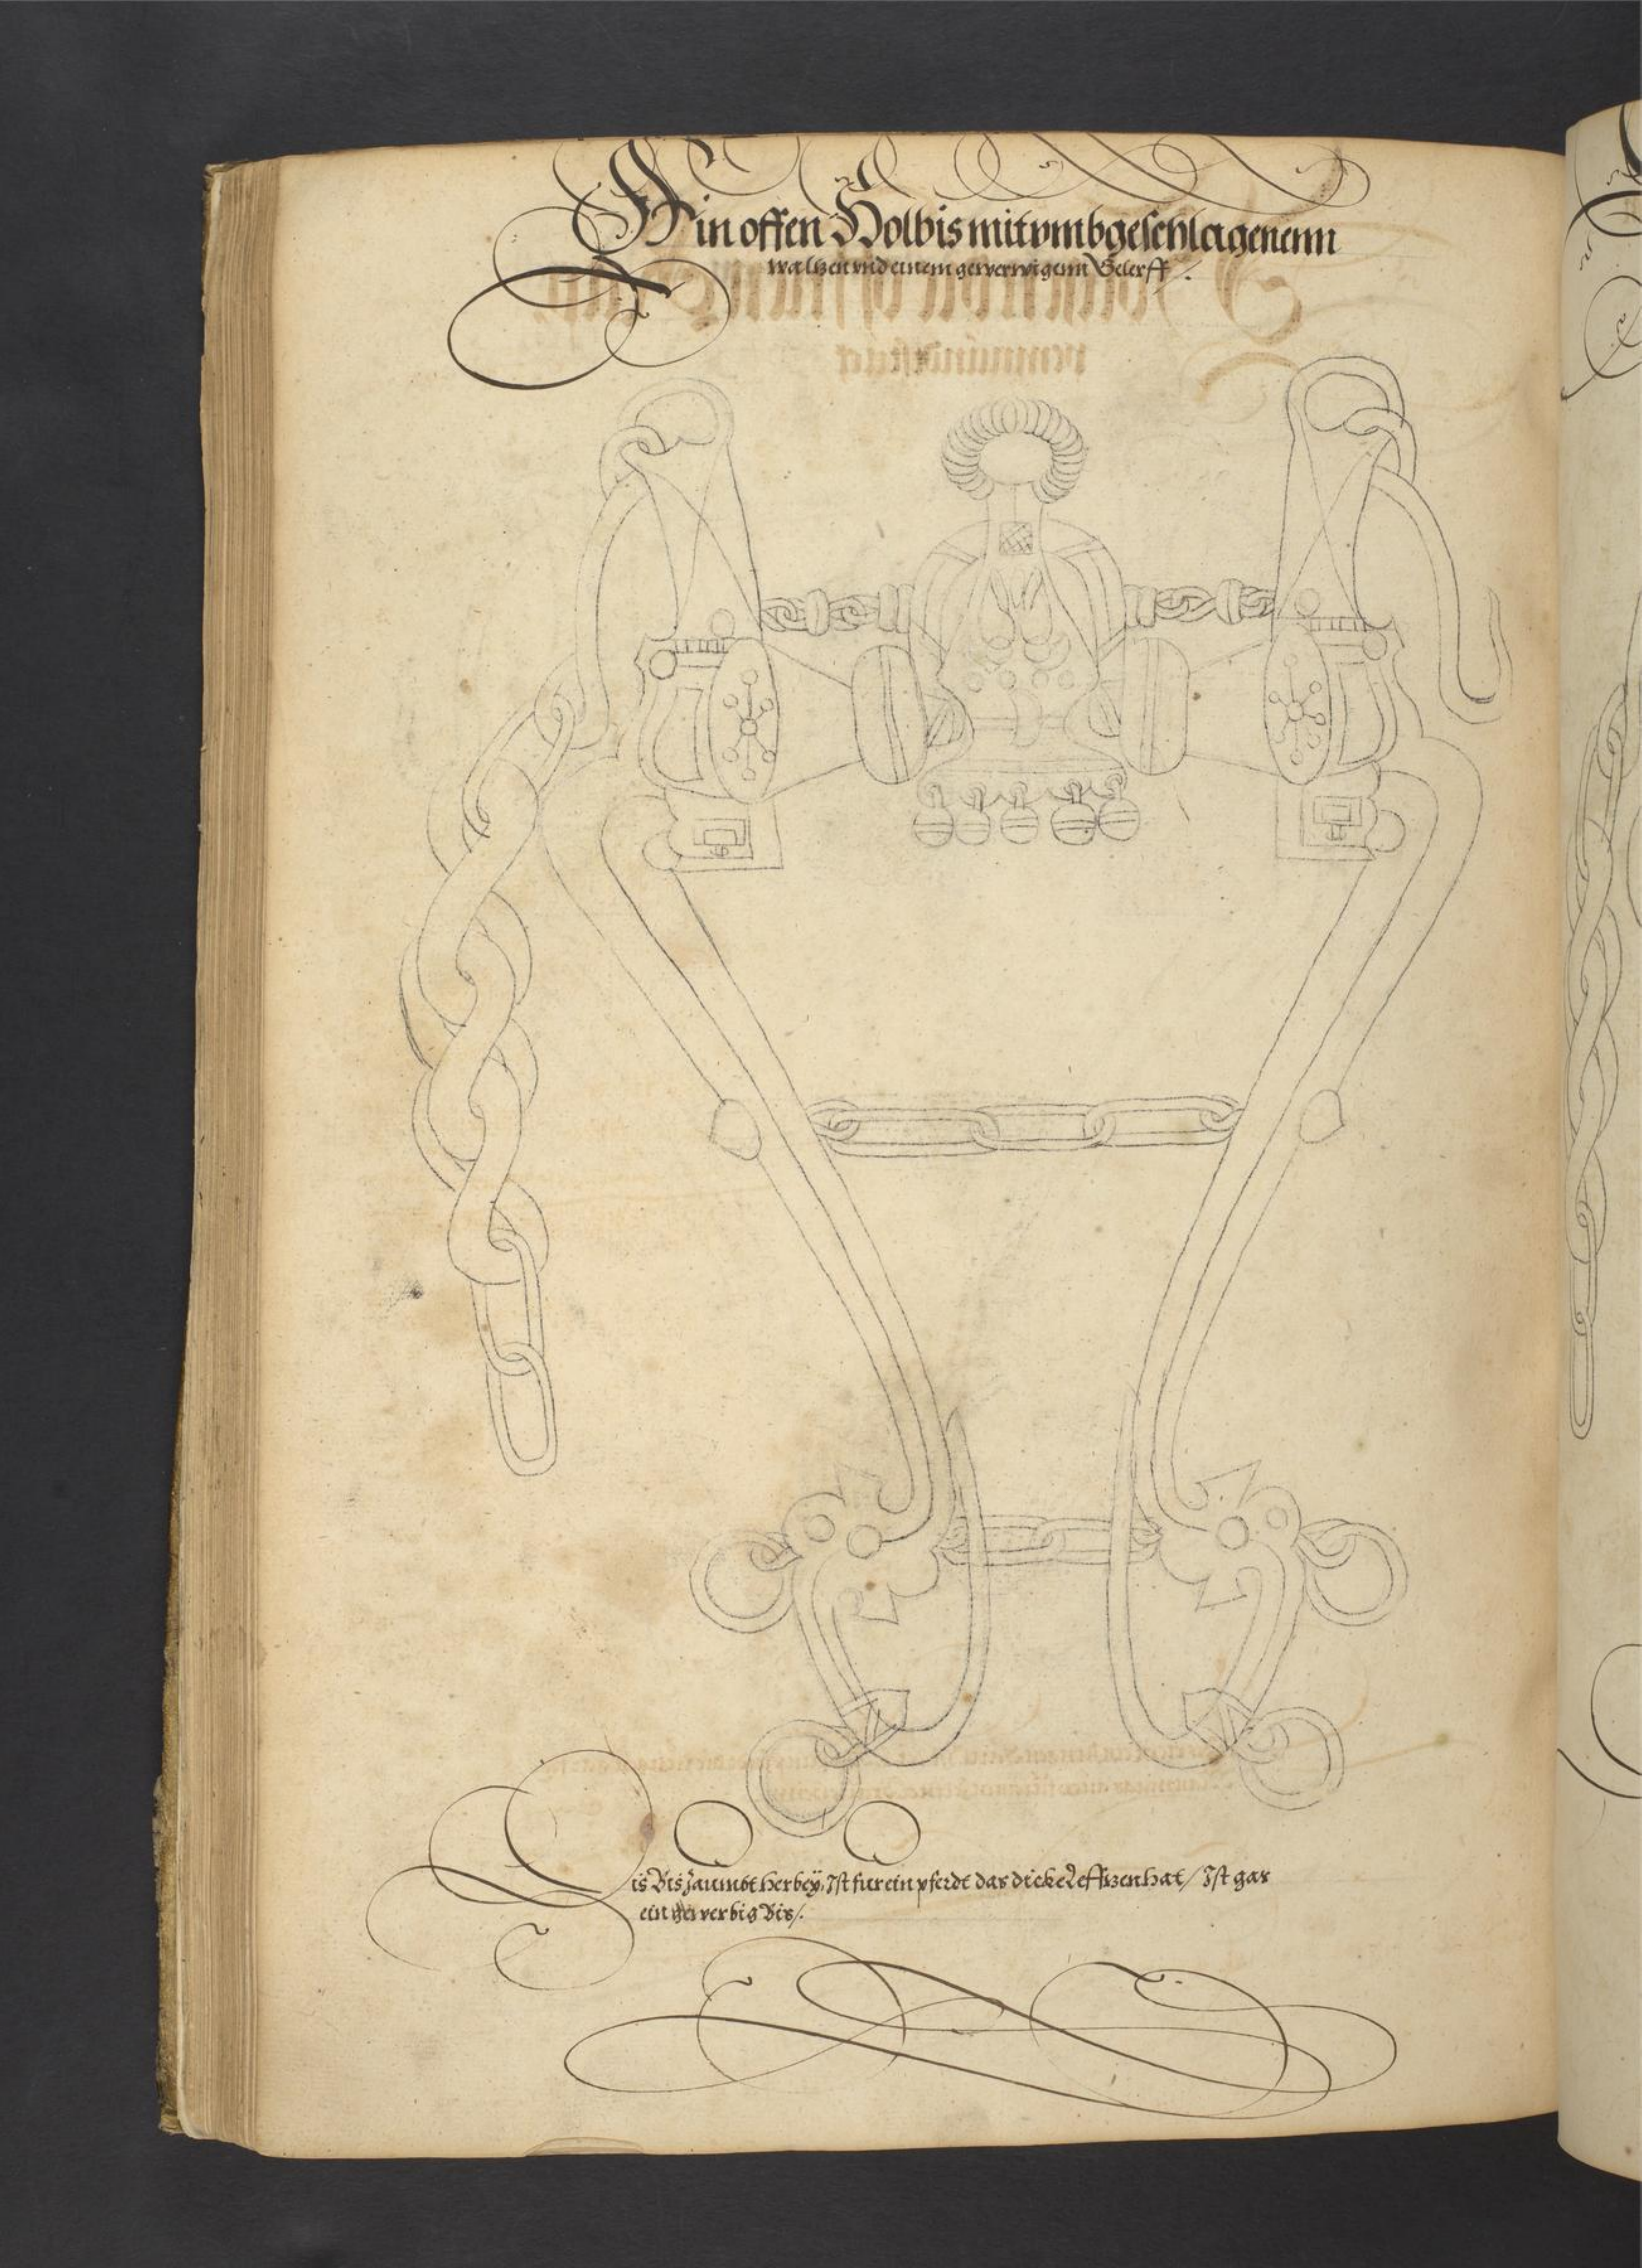 Ein offen Holbis mit vmbgeschlagenenn
waltzen vnd einem gewerwigenn Gelerff /.
Dis Bis zaumbt herbeÿ, Ist fur ein pferdt das dicke Leffzen hat / Ist gar
ein gewerbig Bis /.